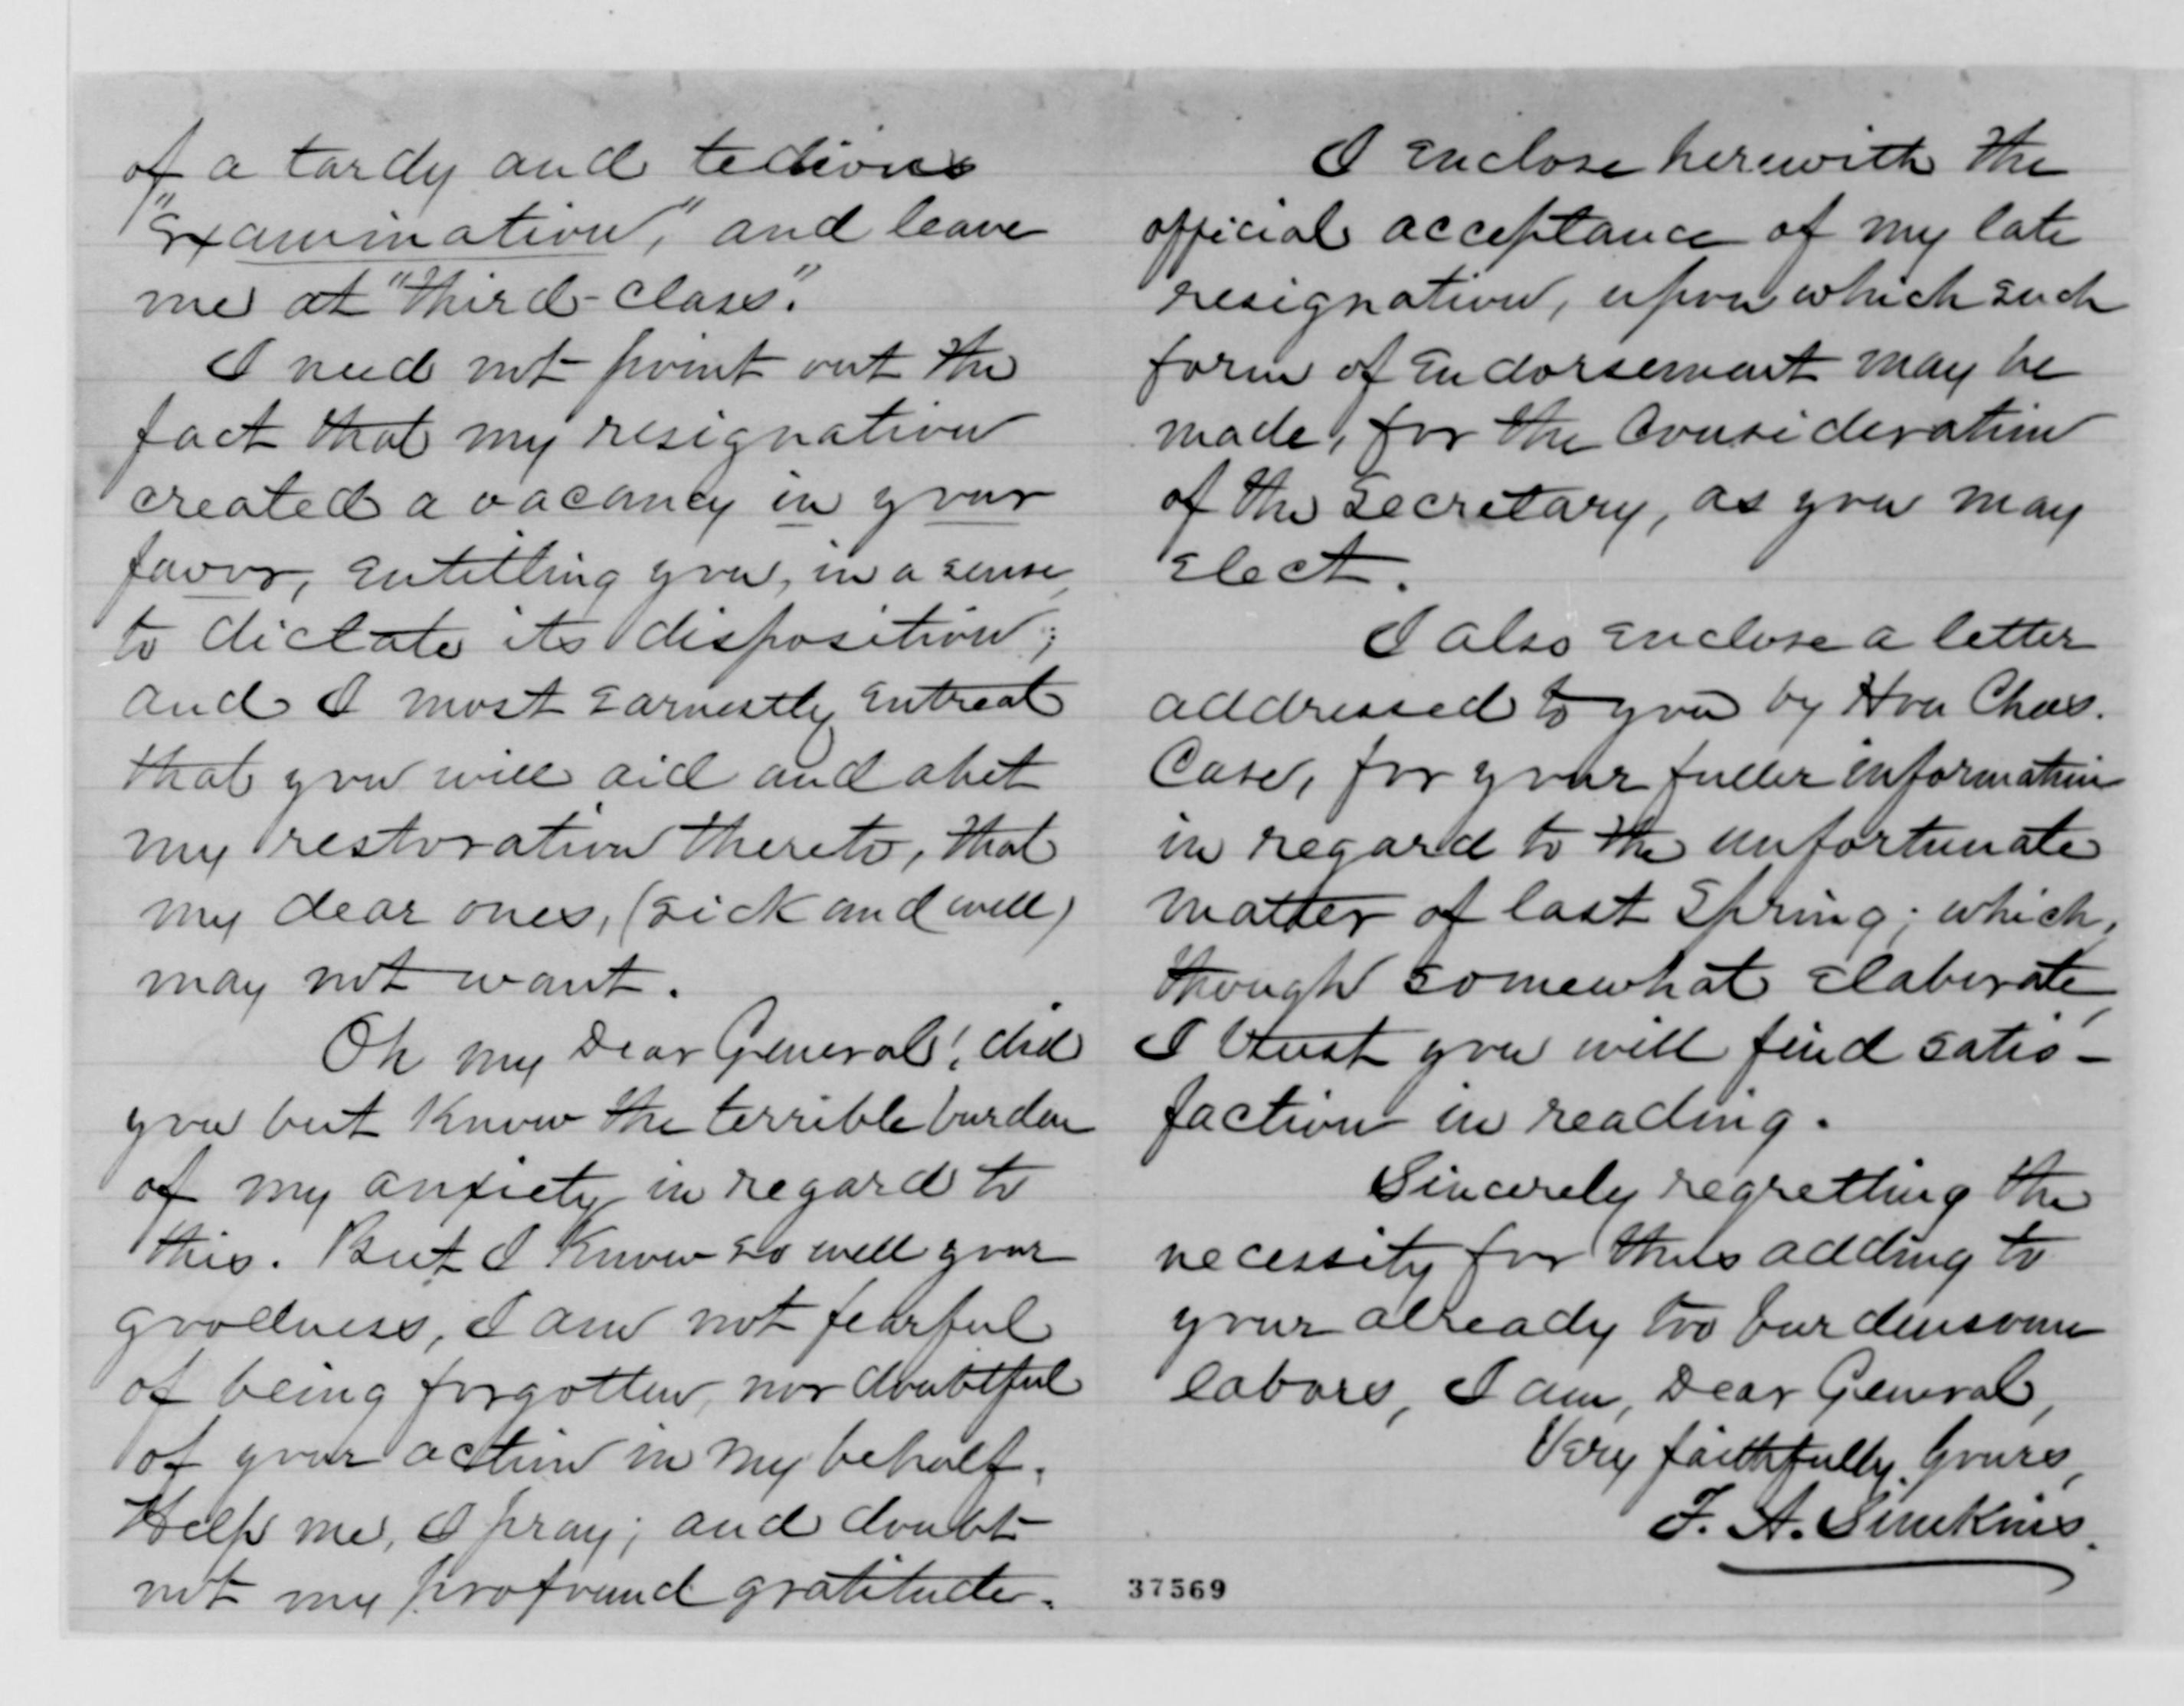 of a tardy and tedious
"Examination," and leave
me at "third-class".
I need not point out the
fact that my resignation
created a vacancy in your
favor, entitling you, in a sense,
to dictate its disposition;
and I most earnestly entreat
that you will aid and abet
my restoration thereto, that
my dear ones, (sick and well)
may not want.
Oh my Dear General! did
you but know the terrible burden
of my anxiety in regard to
this. But I know so well your
goodness, I am not fearful
of being forgotten, nor doubtful
of your action in my behalf.
Help me, I pray; and doubt
not my profound gratitude.
I enclose herewith the
official acceptance of my late
resignation, upon which such
form of Endorsement may be
made, for the Consideration
of the Secretary, as you may
elect.
I also enclose a letter
addressed to you by Hon Chas.
Case, for your fuller information
in regard to the unfortunate
matter of last Spring; which,
though somewhat elaborate,
I trust you will find satis-
faction in reading.
Sincerely regretting the
necessity for thus adding to
your already too burdensome
labors, I am, Dear General,
Very faithfully, Yours,
F. A. Simkins.
37569